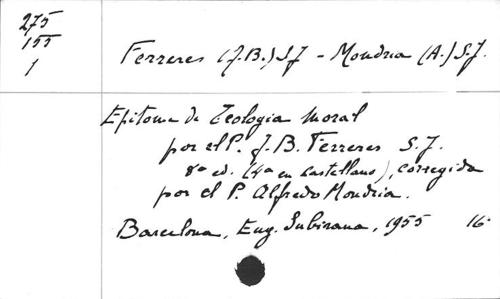 275
155
1
Ferreres (J.B.) S.J. - Mondria (A.) S.J.
Epitome de Teologia Moral
por el P. J. B. Ferreres S. J.
8ª ed. (4ª en castellano), corregida
por el P. Alfredo Mondria.
Barcelona, Eug. Subirana, 1955 16º